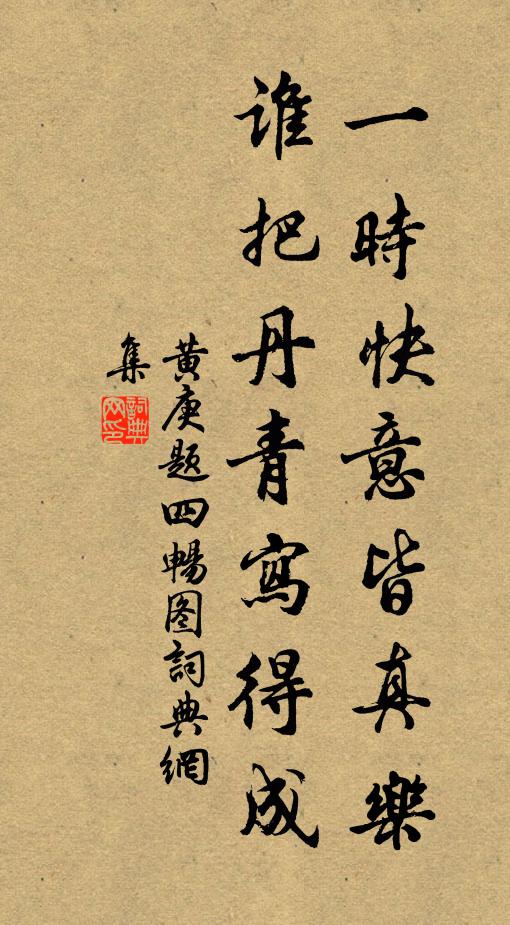 一時快意皆真樂
谁把丹青寫得成
黄庚题四暢图詞典網
集
詞典
网印